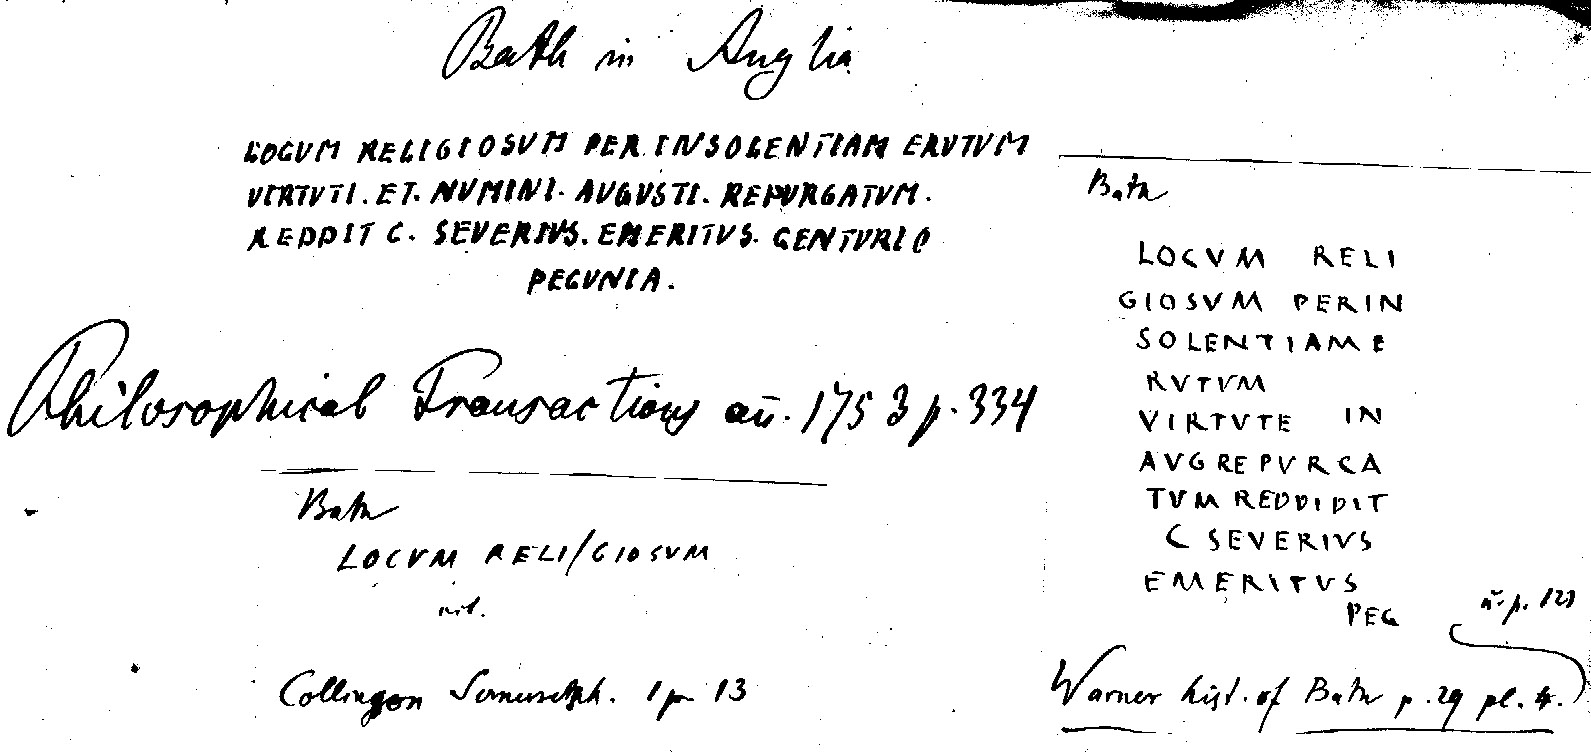 Bath in Anglia
LOCUM RELIGIOSUM PER INSOLENTIAM ERUTUM
VIRTUTI. ET. NUMINI. AUGUSTI. REPURGATUM.
REDDIT C. SEVERIUS. EMERITUS. CENTURIO
PECUNIA.
Philosophical Transactions añ. 1753 p. 334
Bath
LOCVM RELI/GIOSVM
Collinson Somersetsh. 1 p 13
Bath
LOCVM RELI
GIOSVM PERIN
SOLENTIAM E
RVTVM
VIRTVTE IN
AVG REPVRCA
TVM REDDIDIT
C SEVERIVS
EMERITVS
PEG
p. 121
Warner hist. of Bath p. 29 pl. 4.